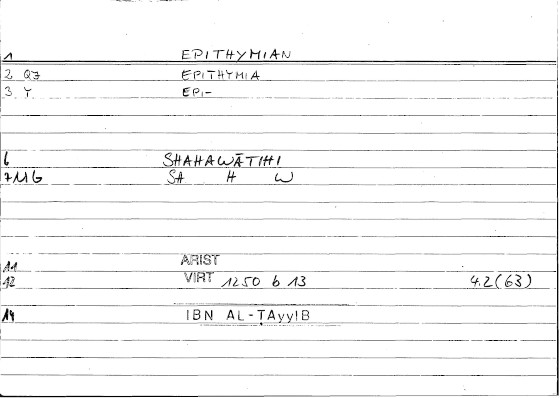 1 EPITHYMIAN
2 Q7 EPITHYMIA
3 Y EPI-
6 SHAHAWĀTIHI
7 MG SA H W
11 ARIST
12 VIRT 1250 b 13 4.2(63)
14 IBN AL-ṬAyyIB